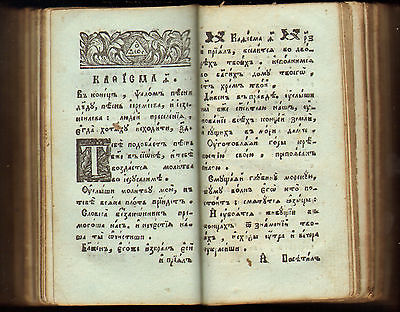 КАѲІСМА Ѳ
Въ конецъ, ѱаломъ пѣсни
дв҃ду, пѣсни іереміева, и іезе
кіилева и людіи преселеніѧ,
егда хотѧху исходити, ѯд҃
Тебѣ подобаетъ пѣ
снь въ сіонѣ, и тебѣ
воздастсѧ молитва
во іерусалимѣ
Оуслыши молитву мою, къ
тебѣ всѧка плоть пріидетъ
Словеса беззаконникъ пре
могоша насъ, и нечестіѧ на
ша ты очистиши
Блаженъ, егоже избралъ еси
и пріѧлъ
Каѳісма Ѳ
и пріѧлъ, вселитсѧ во дво
рѣхъ твоихъ, исполнимсѧ
во благихъ дому твоего
ст҃ъ храмъ твой
Дивенъ въ правдѣ, оуслыши
сп҃сителю нашъ, оупо
всѣмъ концемъ земли,
сущихъ въ мори далече
Оуготовлѧѧ горы крѣ
постію своею, препоѧсанъ
Смущаѧй глубину морскую,
шуму волнъ его кто по
стоитъ, смѧтутсѧ ѧзыцы
И оубоѧтсѧ живущіи въ
концахъ ѿ знаменій тво
ихъ, исходы оутра и вечера
оукрасиши
Посѣтилъ